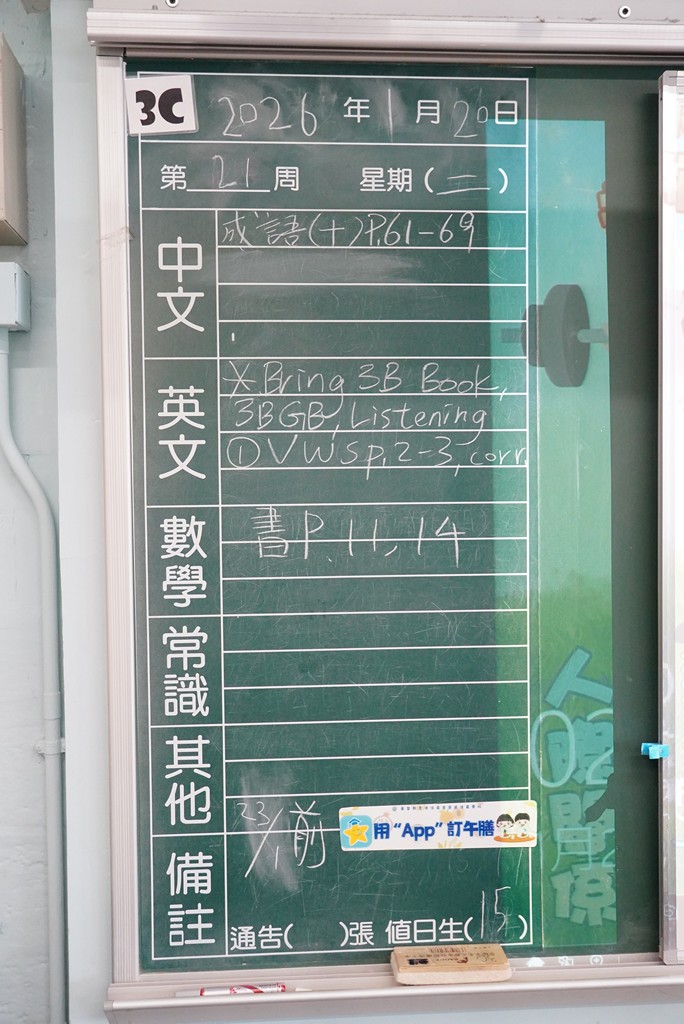 3C 2026年1月20日
第21周 星期(二)
中文
成語(十)P.61-69
英文
*Bring 3B Book,
3BGB, Listening
①VWS p.2-3, corr.
數學
書P.11,14
常識
其他
備註
23/1前
用“App”訂午膳
通告( )張 值日生(15)
人際關係